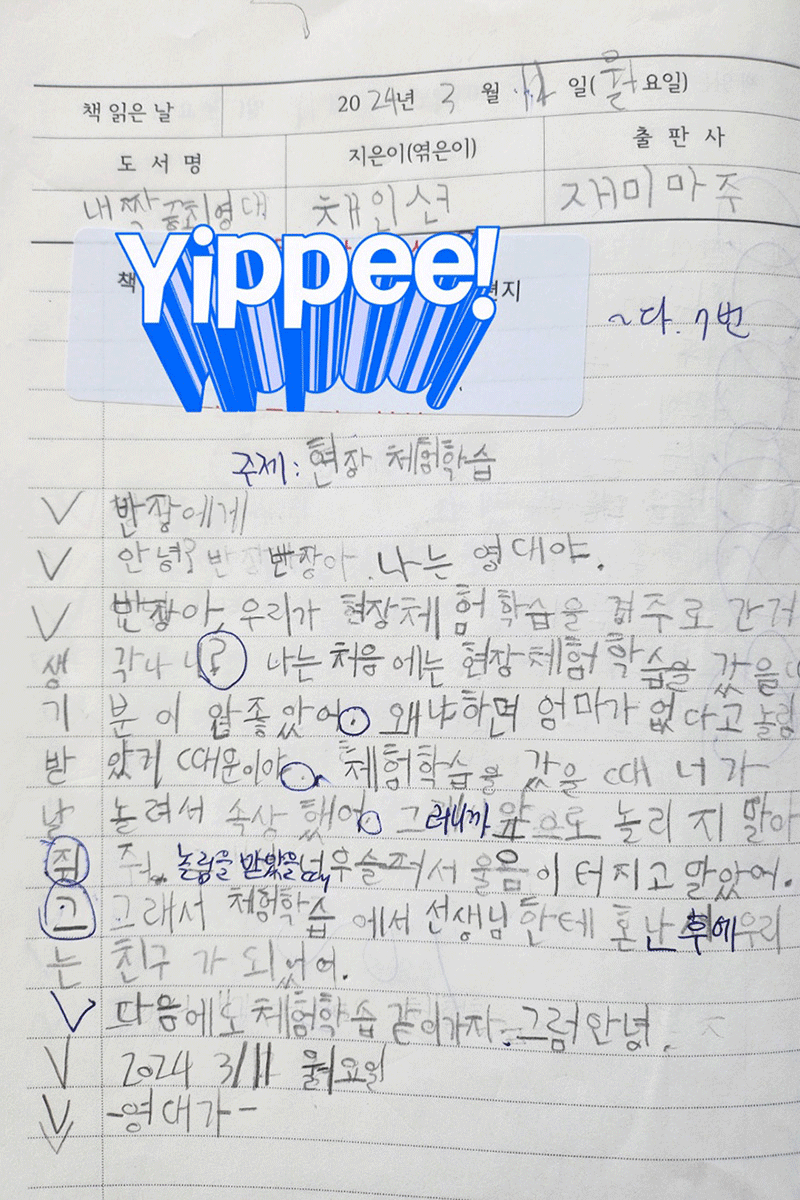 책 읽은 날 2024년 3 월 11 일(월요일)
도 서 명 지은이(엮은이) 출 판 사
내짝궁최영대 채인선 재미마주
Yippee!
책 편지
~다. 7번
주제: 현장 체험학습
반장에게
안녕? 반장아. 나는 영대야.
반장아, 우리가 현장체험학습을 경주로 간거
생각나니? 나는 처음에는 현장체험학습을 갔을
기분이 안좋았어. 왜냐하면 엄마가 없다고 놀림
받았기 때문이야. 체험학습을 갔을 때 너가
날 놀려서 속상했어. 그러니까 앞으로 놀리지 말아
줘. 놀림을 받았을때 너무슬퍼서 울음이 터지고 말았어.
그 그래서 체험학습에서 선생님한테 혼난 후에 우리
는 친구가 되었어.
다음에도 체험학습 같이가자. 그럼안녕.
2024 3/11 월요일
-영대가-